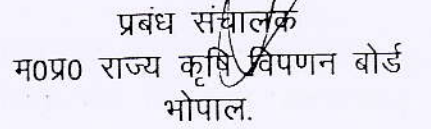 प्रबंध संचालक
म0प्र0 राज्य कृषि विपणन बोर्ड
भोपाल.